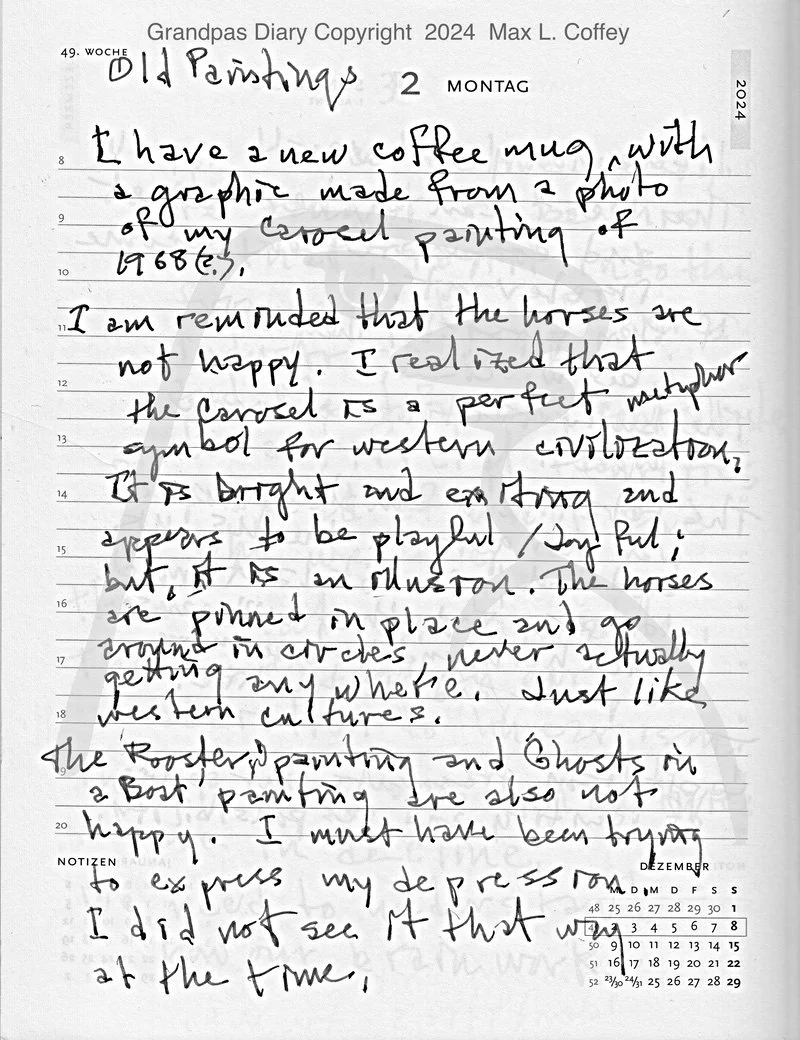 Grandpas Diary Copyright 2024 Max L. Coffey
49. WOCHE
Old Paintings
2 MONTAG
2024
8 I have a new coffee mug, with
a graphic made from a photo
9 of my Carosel painting of
10 1968(?).
11 I am reminded that the horses are
not happy. I realized that
12 the Carosel is a perfect metaphor
13 symbol for western civilization,
14 It is bright and exiting and
appears to be playful / Joyful;
15 but, it is an illusion. The horses
16 are pinned in place and go
around in circles, never actually
17 getting anywhere. Just like
18 western cultures.
19 The "Rooster" painting and Ghosts in
a Boat painting are also not
20 happy. I must have been trying
NOTIZEN
to express my depression.
I did not see it that way
at the time.
DEZEMBER
M D M D F S S
48 25 26 27 28 29 30 1
49 2 3 4 5 6 7 8
50 9 10 11 12 13 14 15
51 16 17 18 19 20 21 22
52 23/30 24/31 25 26 27 28 29